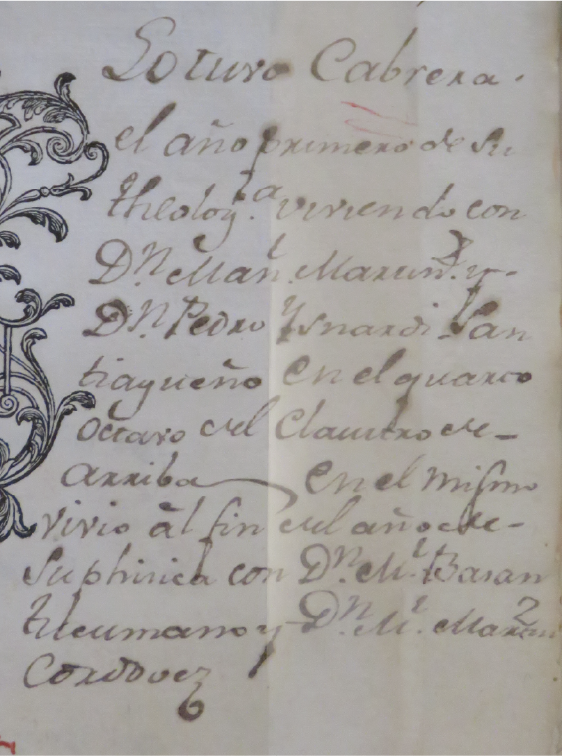 Lo tuvo Cabrera.
el año primero de su
theolog.ª viviendo con
Dⁿ Man.ˡ Martin.ᶻ y-
Dⁿ Pedro Ysnardi San
tiagueño en el quarto
octavo del Claustro de-
arriba en el mismo
vivio al fin del año de-
su phisica con Dⁿ M.ˡ Bazan
tucumano y Dⁿ M.ˡ Martin
Cordovez